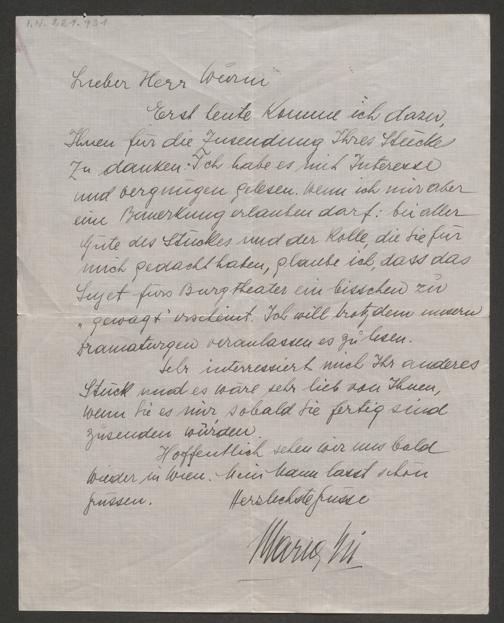 I.N. 221.931
Lieber Herr Würm
Erst heute komme ich dazu,
Ihnen für die Zusendung Ihres Stückes
zu danken. Ich habe es mit Interesse
und vergnügen gelesen. Wenn ich mir aber
eine Bemerkung erlauben darf: bei aller
Güte des Stückes und der Rolle, die Sie für
mich gedacht haben, glaube ich, dass das
Sujet fürs Burgtheater ein bisschen zu
„gewagt" erscheint. Ich will trotzdem unsern
Dramaturgen veranlassen es zu lesen.
Sehr interressiert mich Ihr anderes
Stück und es wäre sehr lieb von Ihnen,
wenn Sie es mir sobald Sie fertig sind
zusenden würden.
Hoffentlich sehen wir uns bald
wieder in Wien. Mein Mann lässt schön
grüssen. Herzlichste Grüsse
Maria